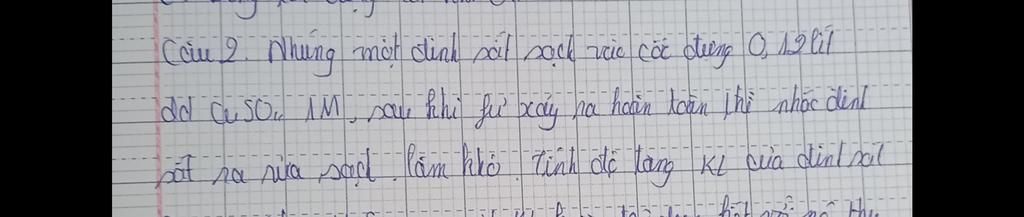 Câu 2. Nhúng một đinh sắt sạch vào cốc đựng 0,12 lít
dd CuSO4 1M, sau khi fư xảy ra hoàn toàn thì nhấc đinh
sắt ra rửa sạch, làm khô. Tính độ tăng KL của đinh sắt